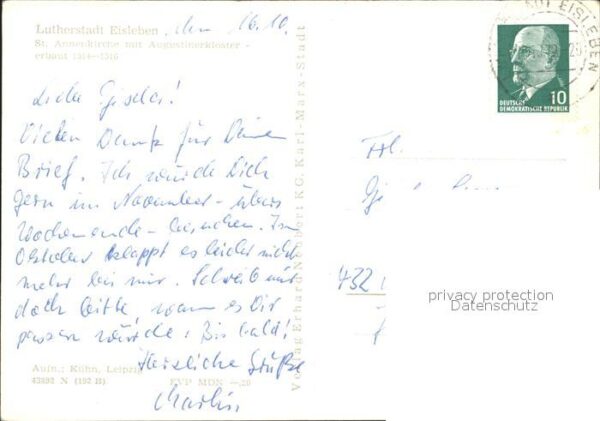 Lutherstadt Eisleben, den 16.10.
St. Annenkirche mit Augustinerkloster -
erbaut 1514-1516
Liebe Gisela!
Vielen Dank für Deinen
Brief. Ich würde Dich
gern im November - übers
Wochenende - besuchen. Im
Oktober klappt es leider nicht
mehr bei mir. Schreib mir
doch bitte, wann es Dir
passen würde. Bis bald!
Herzliche Grüße
Martin
Aufn.: Kühn, Leipzig
43892 N (192 B). EVP MDN -,20
Verlag Erhard Neubert KG, Karl-Marx-Stadt
EISLEBEN
10
DEUTSCHE
DEMOKRATISCHE REPUBLIK
Frl.
432
privacy protection
Datenschutz